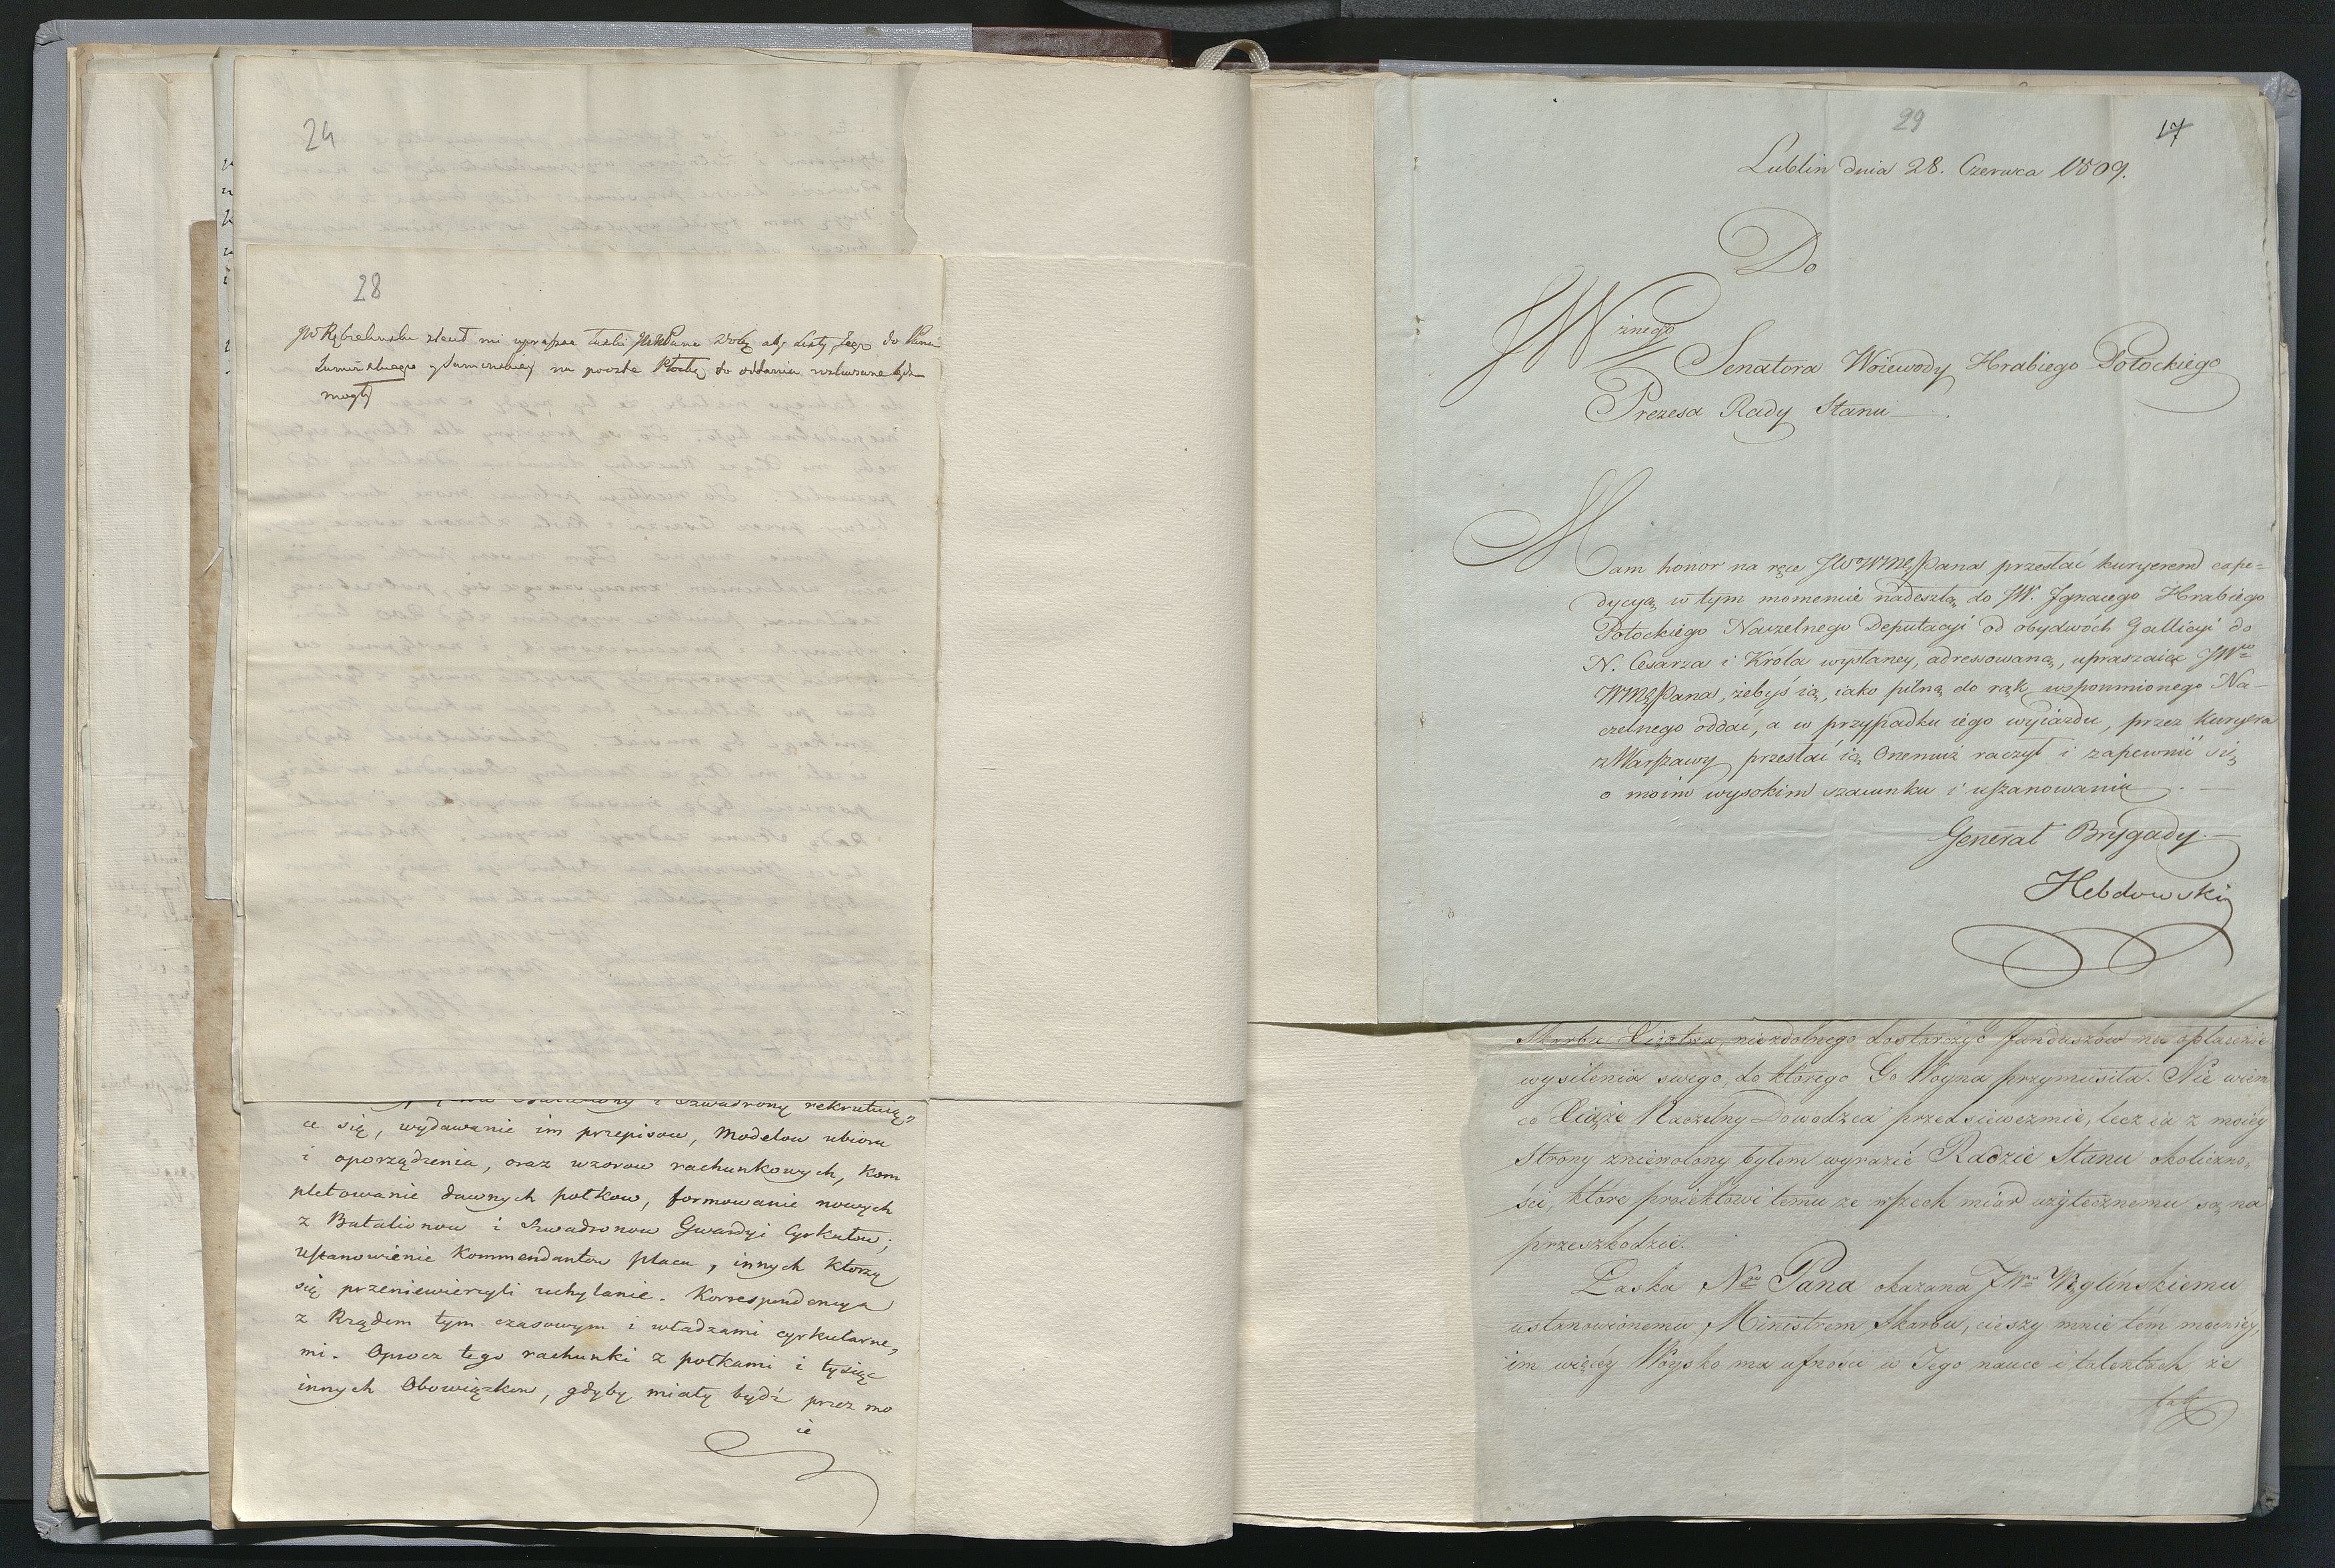 24
28
JW Rębieliński zlecił mi uprasza łaski JWWPana Dobr. aby Listy Jego do Pana
na pocztę do oddania wskazane
mogły
ce się, wydawanie im przepisow, Modelow ubioru
i oporządzenia, oraz wzorow rachunkowych, kom
pletowanie dawnych połkow, formowanie nowych
z Batalionow i Szwadronow Gwardyi Cyrkułow;
ustanowienie Kommendantow placu, innych ktorzy
się przeniewierzyli uchylanie. Korrespondencya
z Rządem tym czasowym i władzami cyrkularne,
mi. Oprocz tego rachunki z połkami i tysiąc
innych Obowiązkow, gdyby miały bydź przez mo
ie
29
17
Lublin dnia 28. Czerwca 1809.
Do
JWżnego
Senatora Woiewody Hrabiego Potockiego
Prezesa Rady Stanu
Mam honor na ręce JWoWMgPana przesłać kuryerem expe=
dycyą w tym momencie nadeszłą do JW. Ignacego Hrabiego
Potockiego Naczelnego Deputacyi od obydwóch Gallicyi do
N. Cesarza i Króla wysłaney, adressowaną, upraszaiąc JWo
WMgPana, żebyś ią, iako pilną do rąk wspomnionego Na-
czelnego oddać, a w przypadku iego wyiazdu, przez Kuryera
z Warszawy przesłać ią Onemuż raczył i zapewnić się
o moim wysokim szacunku i uszanowaniu.
Generał Brygady
Hebdowski
Skarbu Xięstwa, niezdolnego dostarczyć funduszów na opłacenie
wysilenia swego, do którego Go Woyna przymusiła. Nie wiem
co Xiąże Naczelny Dowodzca przedsięwezmie, lecz ia z moiéy
strony zniewolony byłem wyrazić Radzie Stanu okoliczno=
ści, które proiektowi temu ze wszech miar użytecznemu są na
przeszkodzie.
Łaska Ngo Pana okazana JWu Węglińskiemu
ustanowionemu Ministrem Skarbu, cieszy mnie tém mocniéy,
im więcéy Woysko ma ufności w Jego nauce i talentach że